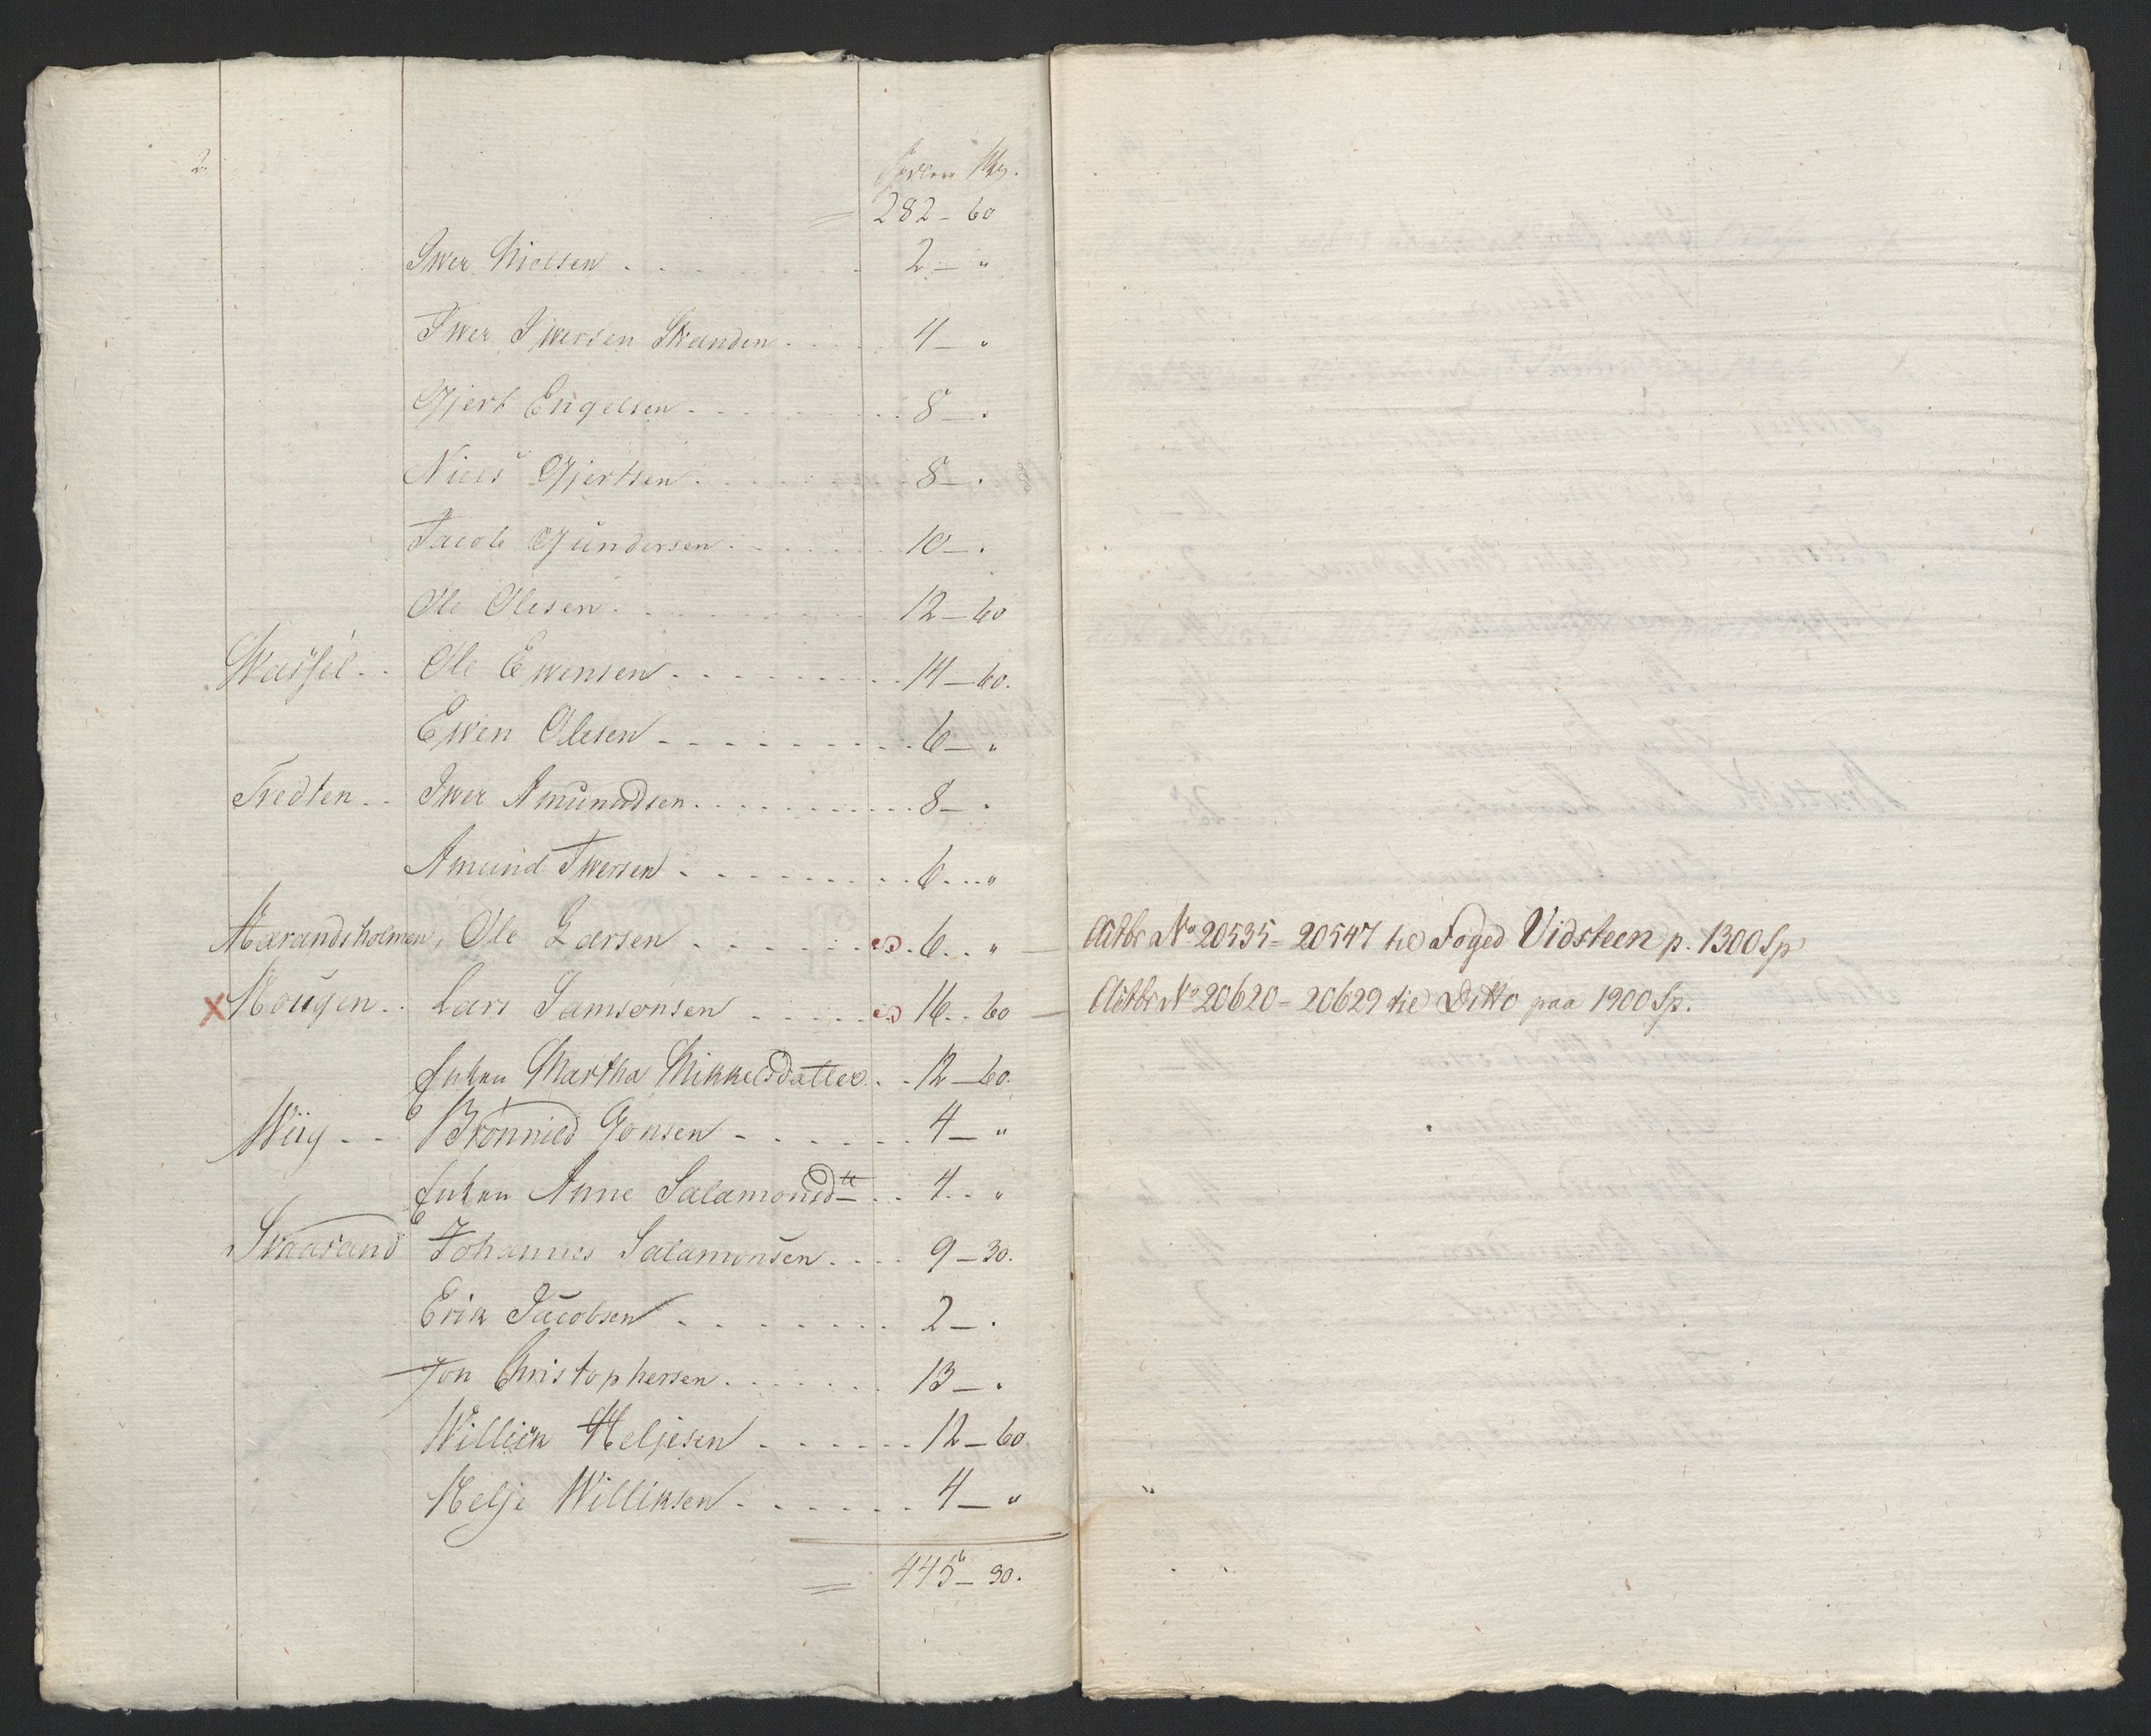 2.
282 - 60
Iwer Nielsen . . . . 2 - "
Iwer Iwersen Skanden . . . 4 - "
Gjert Engelsen . . . . 8 - .
Niels Gjertsen . . . . 8 - .
Jacob Gundersen . . . . 10 - .
Ole Olesen . . . . 12 - 60
Wassel . . Ole Ewensen . . . . 14 - 60.
Ewen Olesen . . . . 6 - "
Tredten . . Iwer Amundsen . . . . 8 - .
Amund Iwersen . . . . 6 . . . "
Marandsholmen, Ole Larsen . . . . 6 . . " — Actbr No 20535 = 20547 til Foged Vidsteen p. 1300 Sp
X Hougen . . Lars Samsonsen . . . . 16 . . 60 — Actbr No 20620 = 20629 til Ditto paa 1900 Sp.
Enken Martha Mikkelsdatter . . 12 - 60.
Wiig - - Brønnild Jonsen . . . . 4 - "
Enken Anne Salamonsdtr . . 4 . . "
Skaarand Johannes Salamonsen . . . . 9 - 30.
Erik Jacobsen . . . . 2 - .
Jon Christophersen . . . . 13 - .
Willick Heljesen . . . . 12 - 60
Helje Williksen . . . . 4 - "
445 - 30.